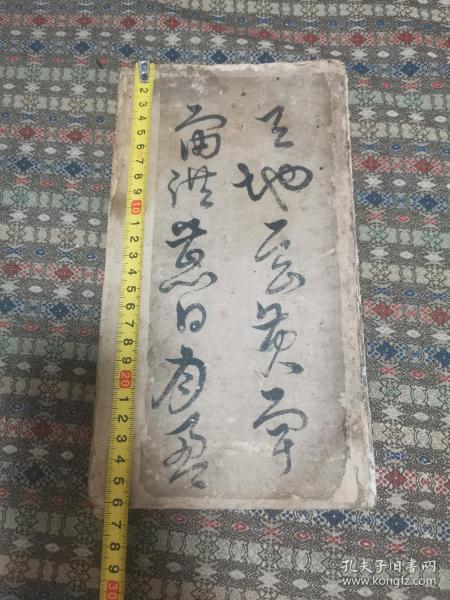 天地玄黄宇
宙洪荒日月盈
2 3 4 5 6 7 8 9 10 1 2 3 4 5 6 7 8 9 20 1 2 3 4 5 6 7 8 9 30
孔夫子旧书网
www.kongfz.com